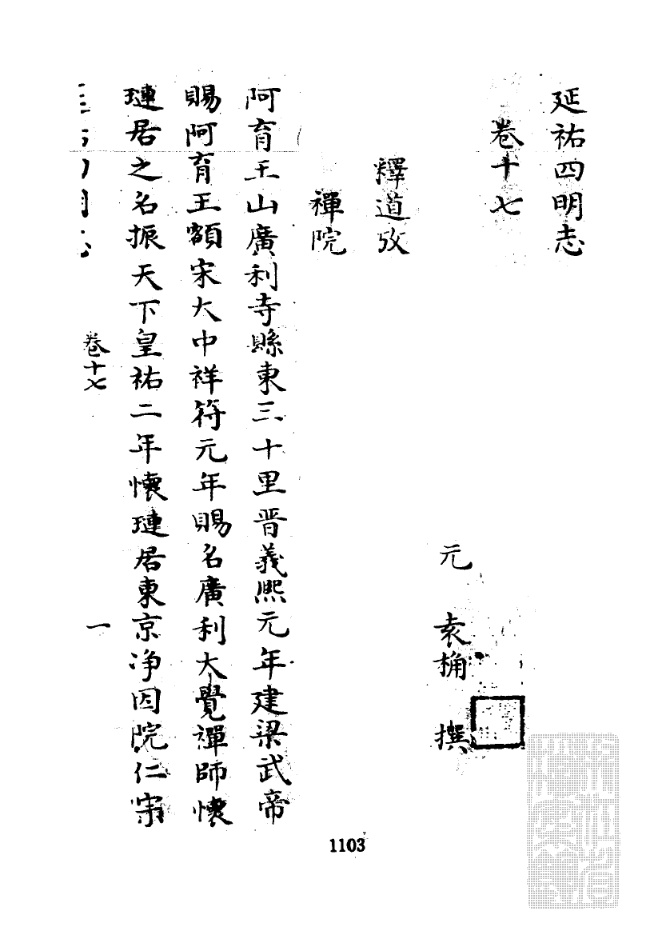 延祐四明志
卷十七
元 袁桷 撰
釋道攷
禪院
阿育王山廣利寺縣東三十里晉義熙元年建梁武帝
賜阿育王額宋大中祥符元年賜名廣利大覺禪師懷
璉居之名振天下皇祐二年懷璉居東京淨因院仁宗
卷十七
一
1103